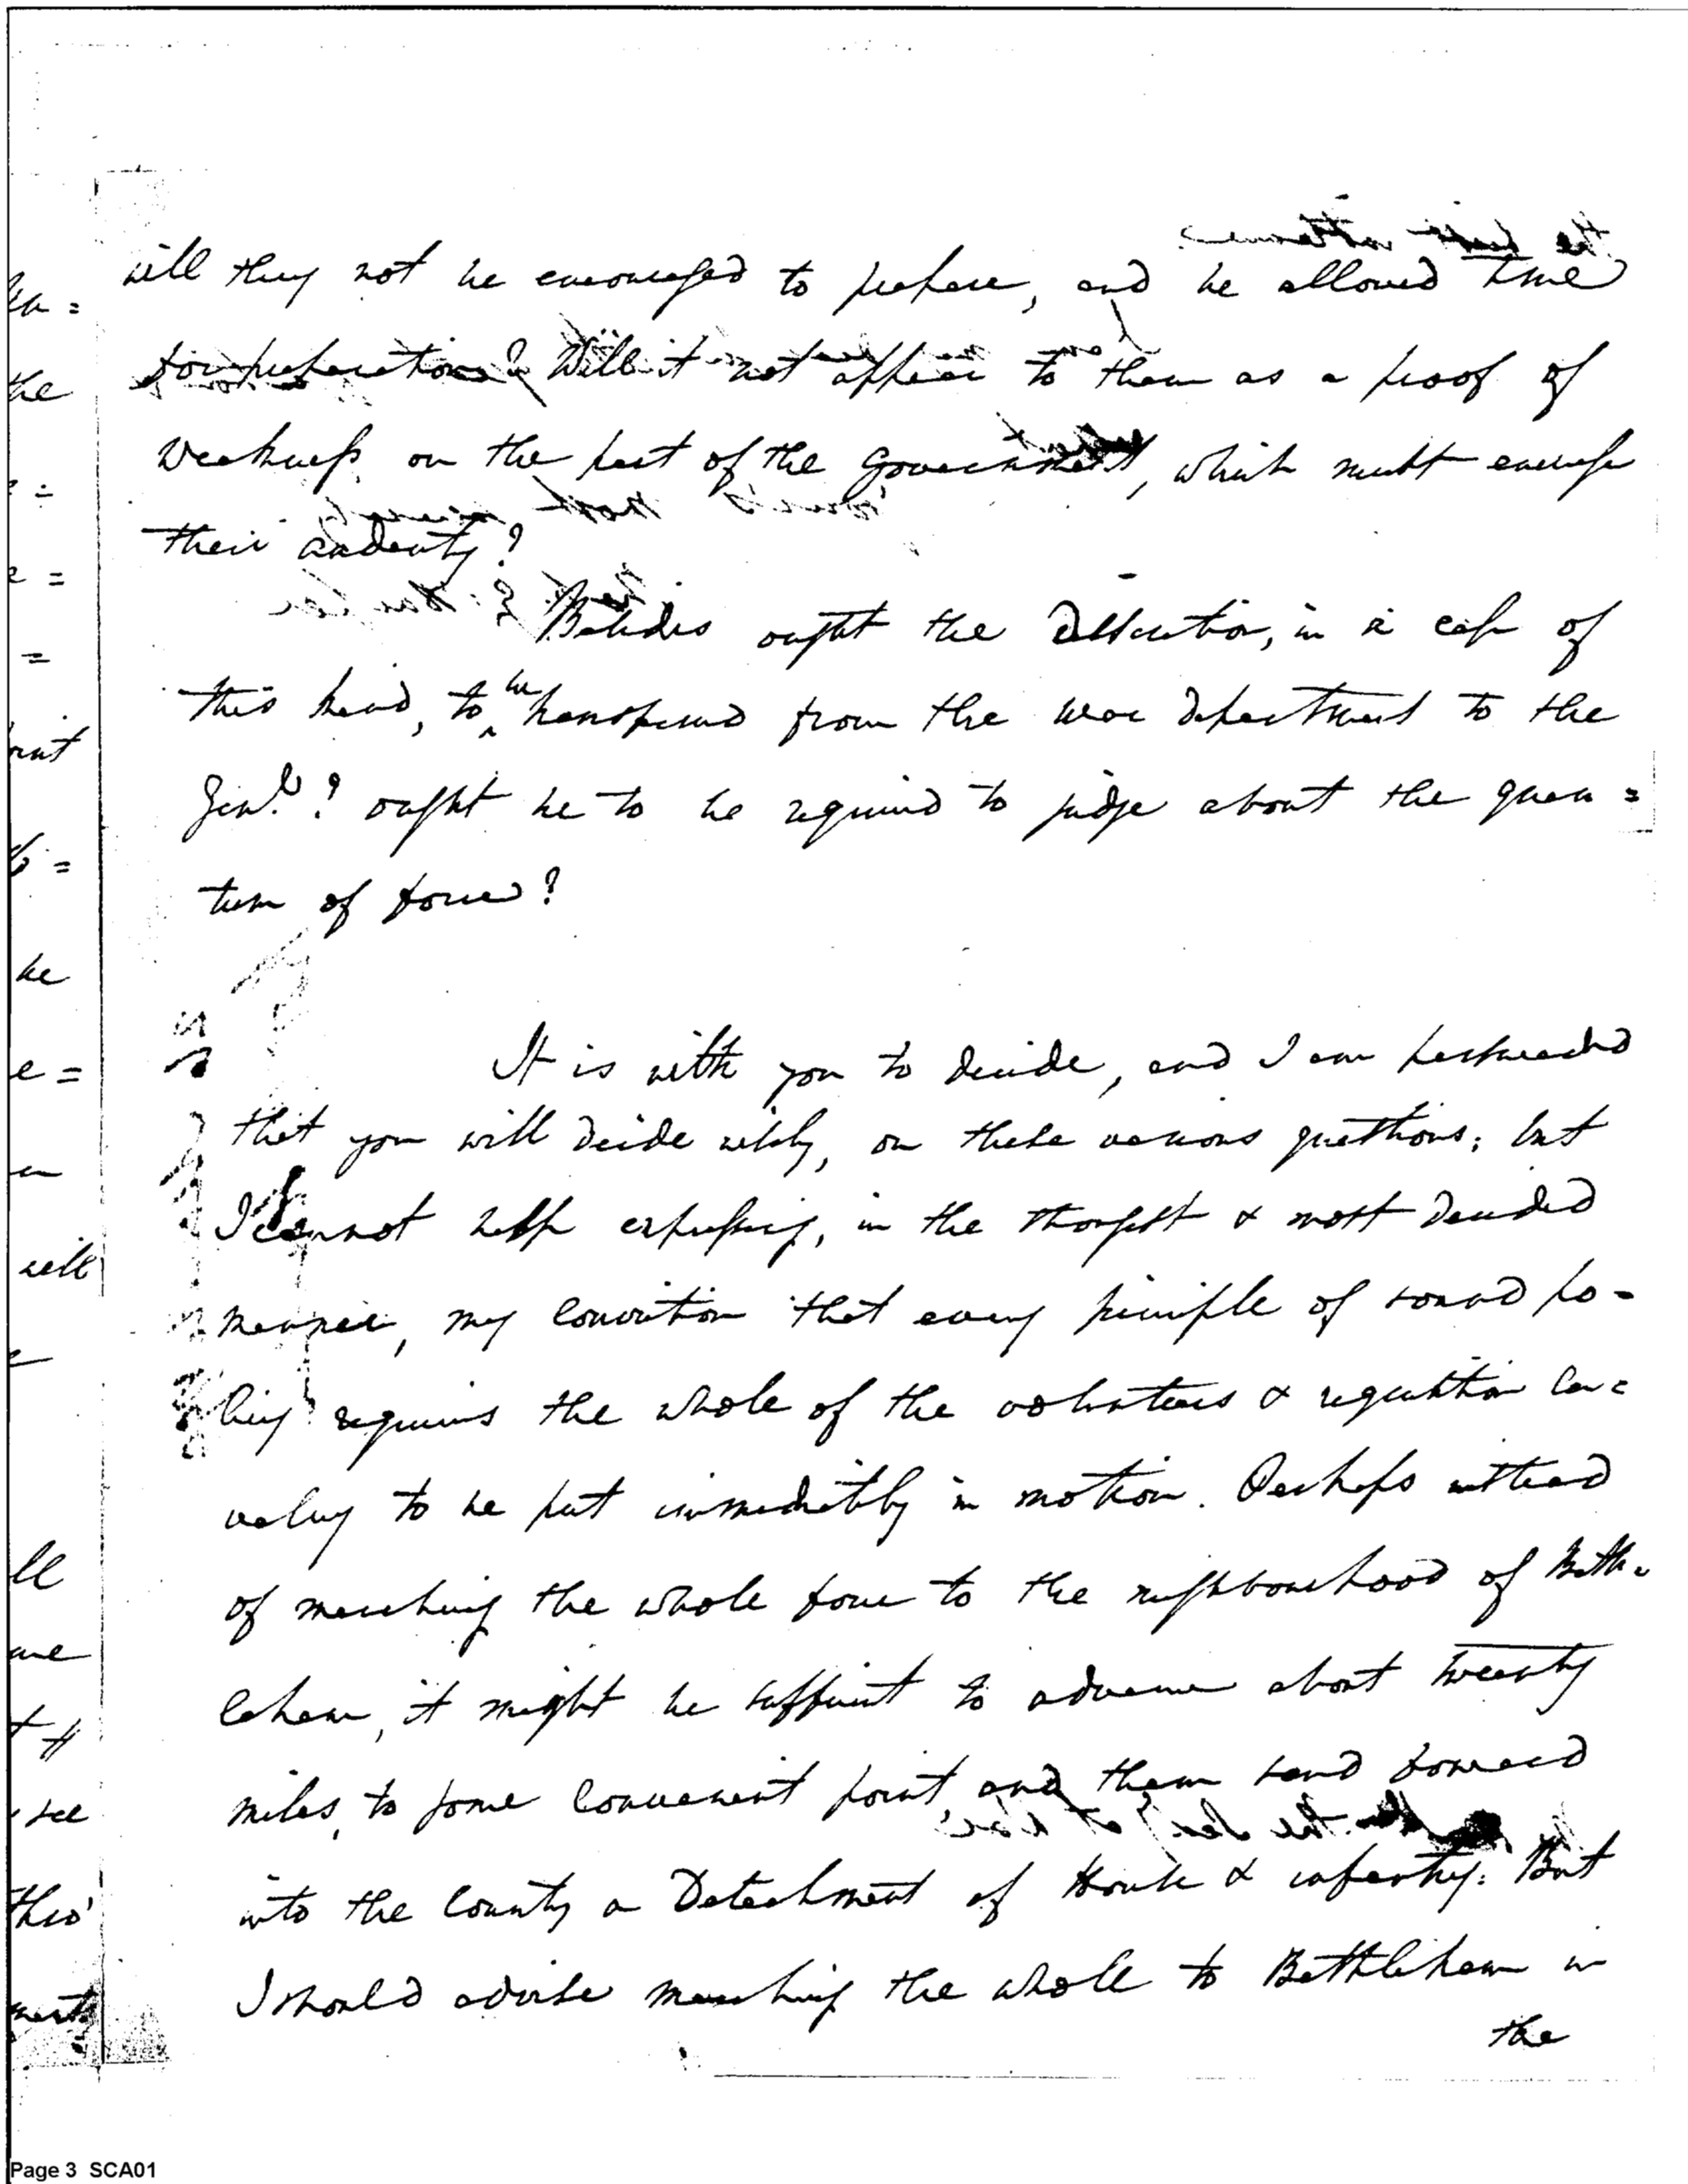 will they not be encouraged to prepare, and be allowed time
for preparation? Will it not appear to them as a proof of
weakness on the part of the Government, which must encrease
their audacity?
Besides ought the discretion, in a case of
this kind, to be transferred from the war department to the
Genl.? ought he to be required to judge about the quan=
tum of force?
It is with you to decide, and I am perswaded
that you will decide wisely, on these various questions; but
I cannot help expressing, in the strongest & most decided
manner, my conviction that every principle of sound po-
licy requires the whole of the volunteers & requisition ca=
valry to be put immediately in motion. Perhaps instead
of marching the whole force to the neighbourhood of Beth=
lehem, it might be sufficient to advance about twenty
miles, to some convenient point, and then send forward
into the County a Detachment of Horse & infantry. But
I should advise marching the whole to Bethlehem in
the
ha=
the
e=
=
he
e=
will
ll
see
thro'
Page 3 SCA01